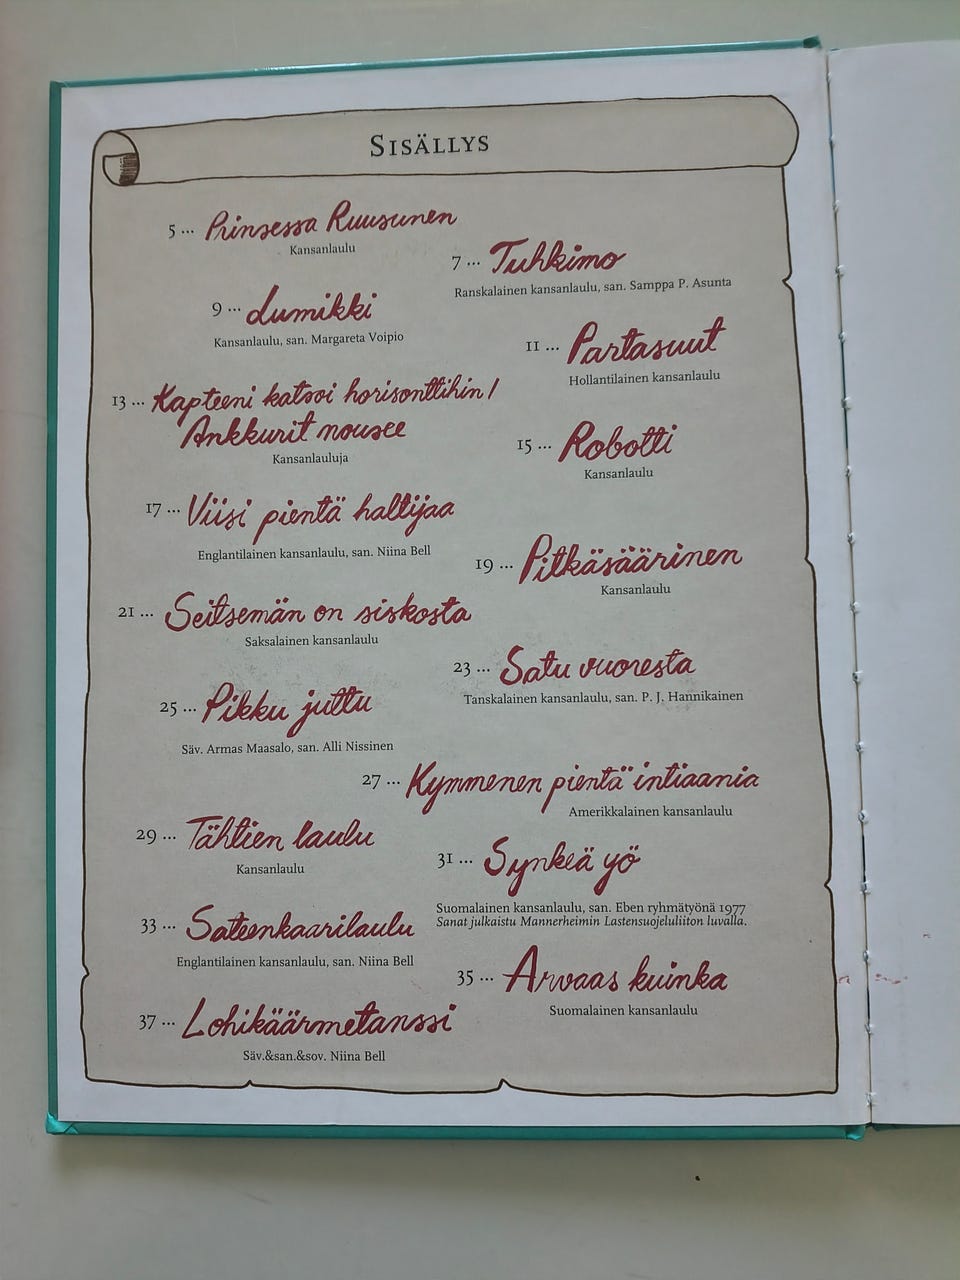 Sisällys
5 ... Prinsessa Ruusunen
Kansanlaulu
7 ... Tuhkimo
Ranskalainen kansanlaulu, san. Samppa P. Asunta
9 ... Lumikki
Kansanlaulu, san. Margareta Voipio
11 ... Partasuut
Hollantilainen kansanlaulu
13 ... Kapteeni katsoi horisonttihin /
Ankkurit nousee
Kansanlauluja
15 ... Robotti
Kansanlaulu
17 ... Viisi pientä haltijaa
Englantilainen kansanlaulu, san. Niina Bell
19 ... Pitkäsäärinen
Kansanlaulu
21 ... Seitsemän on siskosta
Saksalainen kansanlaulu
23 ... Satu vuoresta
Tanskalainen kansanlaulu, san. P. J. Hannikainen
25 ... Pikku juttu
Säv. Armas Maasalo, san. Alli Nissinen
27 ... Kymmenen pientä intiaania
Amerikkalainen kansanlaulu
29 ... Tähtien laulu
Kansanlaulu
31 ... Synkeä yö
Suomalainen kansanlaulu, san. Eben ryhmätyönä 1977
Sanat julkaistu Mannerheimin Lastensuojeluliiton luvalla.
33 ... Sateenkaarilaulu
Englantilainen kansanlaulu, san. Niina Bell
35 ... Arvaas kuinka
Suomalainen kansanlaulu
37 ... Lohikäärmetanssi
Säv.&san.&sov. Niina Bell